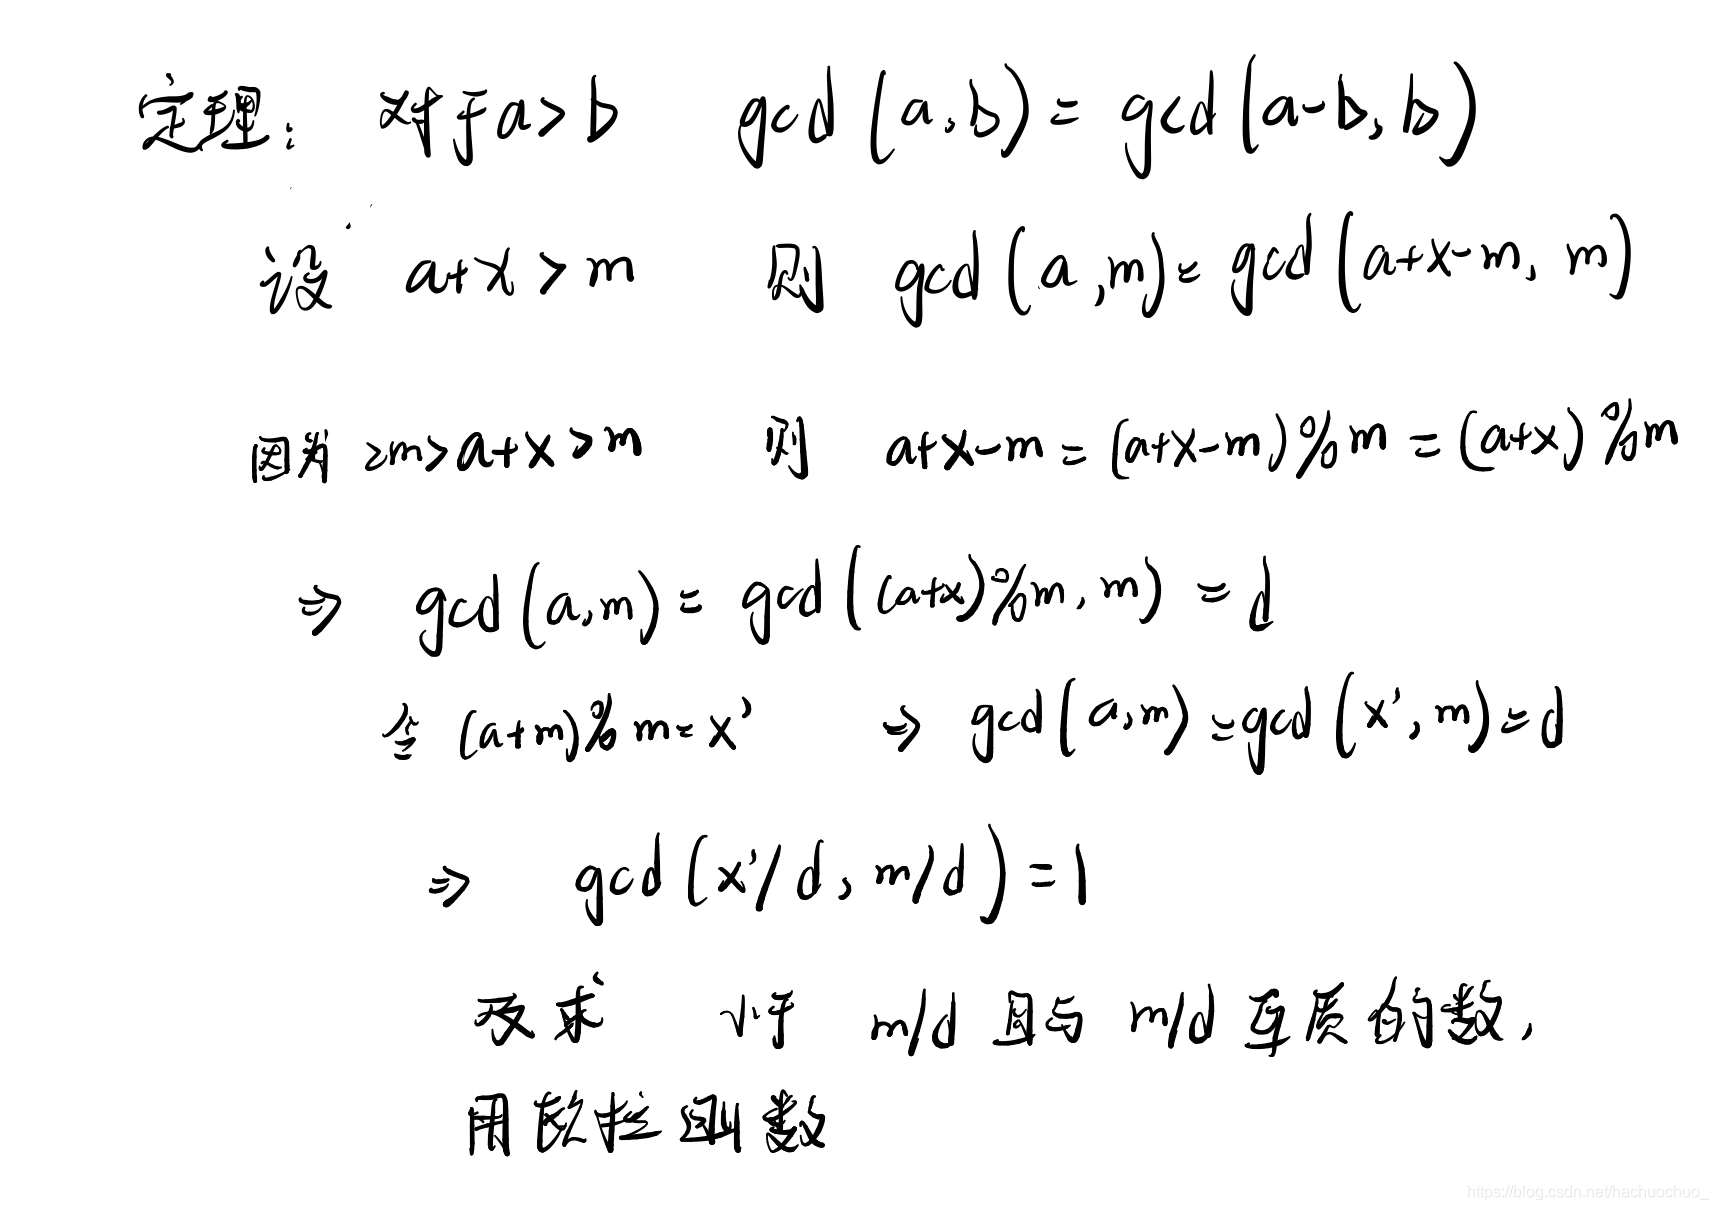 定理: 对于a>b gcd(a,b)=gcd(a-b,b)
设 a+x>m 则 gcd(a,m)=gcd(a+x-m, m)
因为 2m>a+x>m 则 a+x-m=(a+x-m)%m=(a+x)%m
⇒ gcd(a,m)=gcd((a+x)%m, m)=d
令 (a+m)%m=x' ⇒ gcd(a,m)=gcd(x',m)=d
⇒ gcd(x'/d, m/d)=1
及求 小于 m/d 且与 m/d 互质的数,
用欧拉函数
https://blog.csdn.net/hachuochuo_